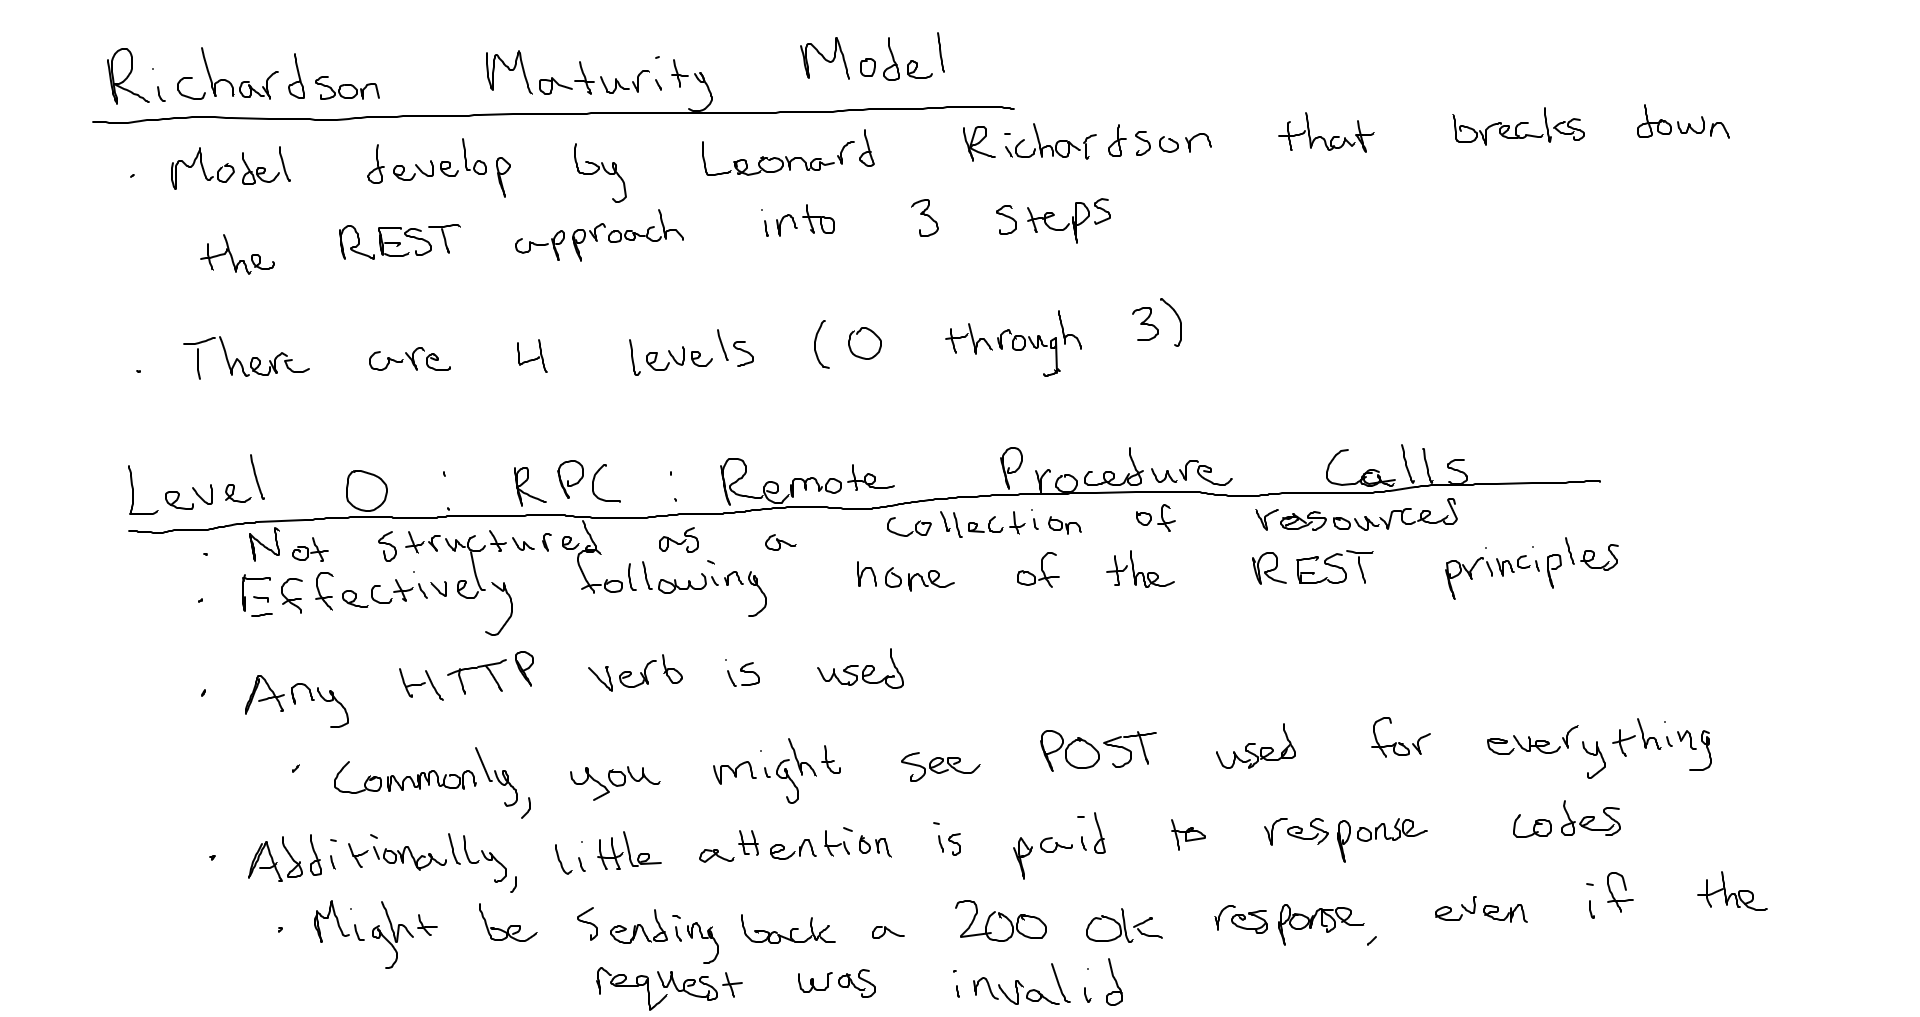 Richardson Maturity Model
· Model develop by Leonard Richardson that breaks down
the REST approach into 3 steps
· There are 4 levels (0 through 3)
Level 0 : RPC : Remote Procedure Calls
· Not structured as a collection of resources
· Effectively following none of the REST principles
· Any HTTP verb is used
· Commonly, you might see POST used for everything
· Additionally, little attention is paid to response codes
· Might be sending back a 200 ok response, even if the
request was invalid